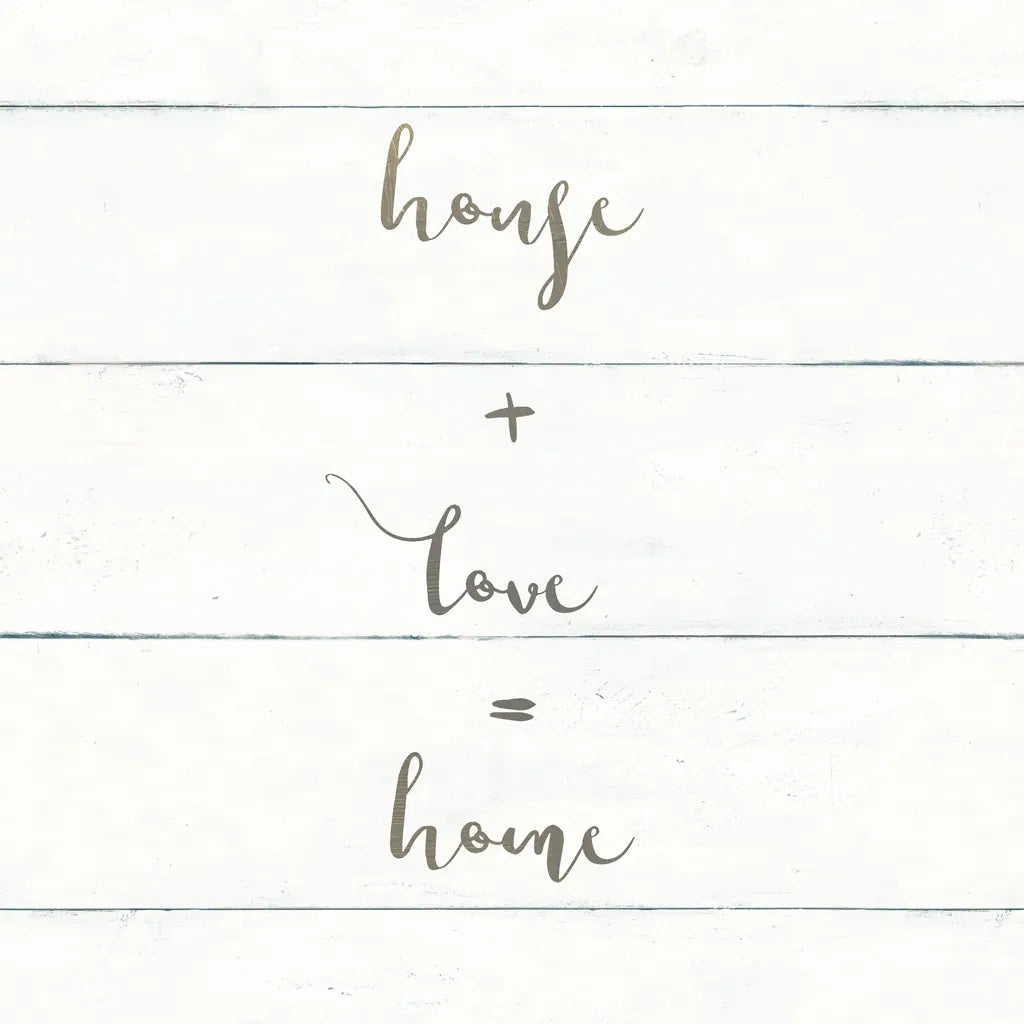 house
+
love
=
home